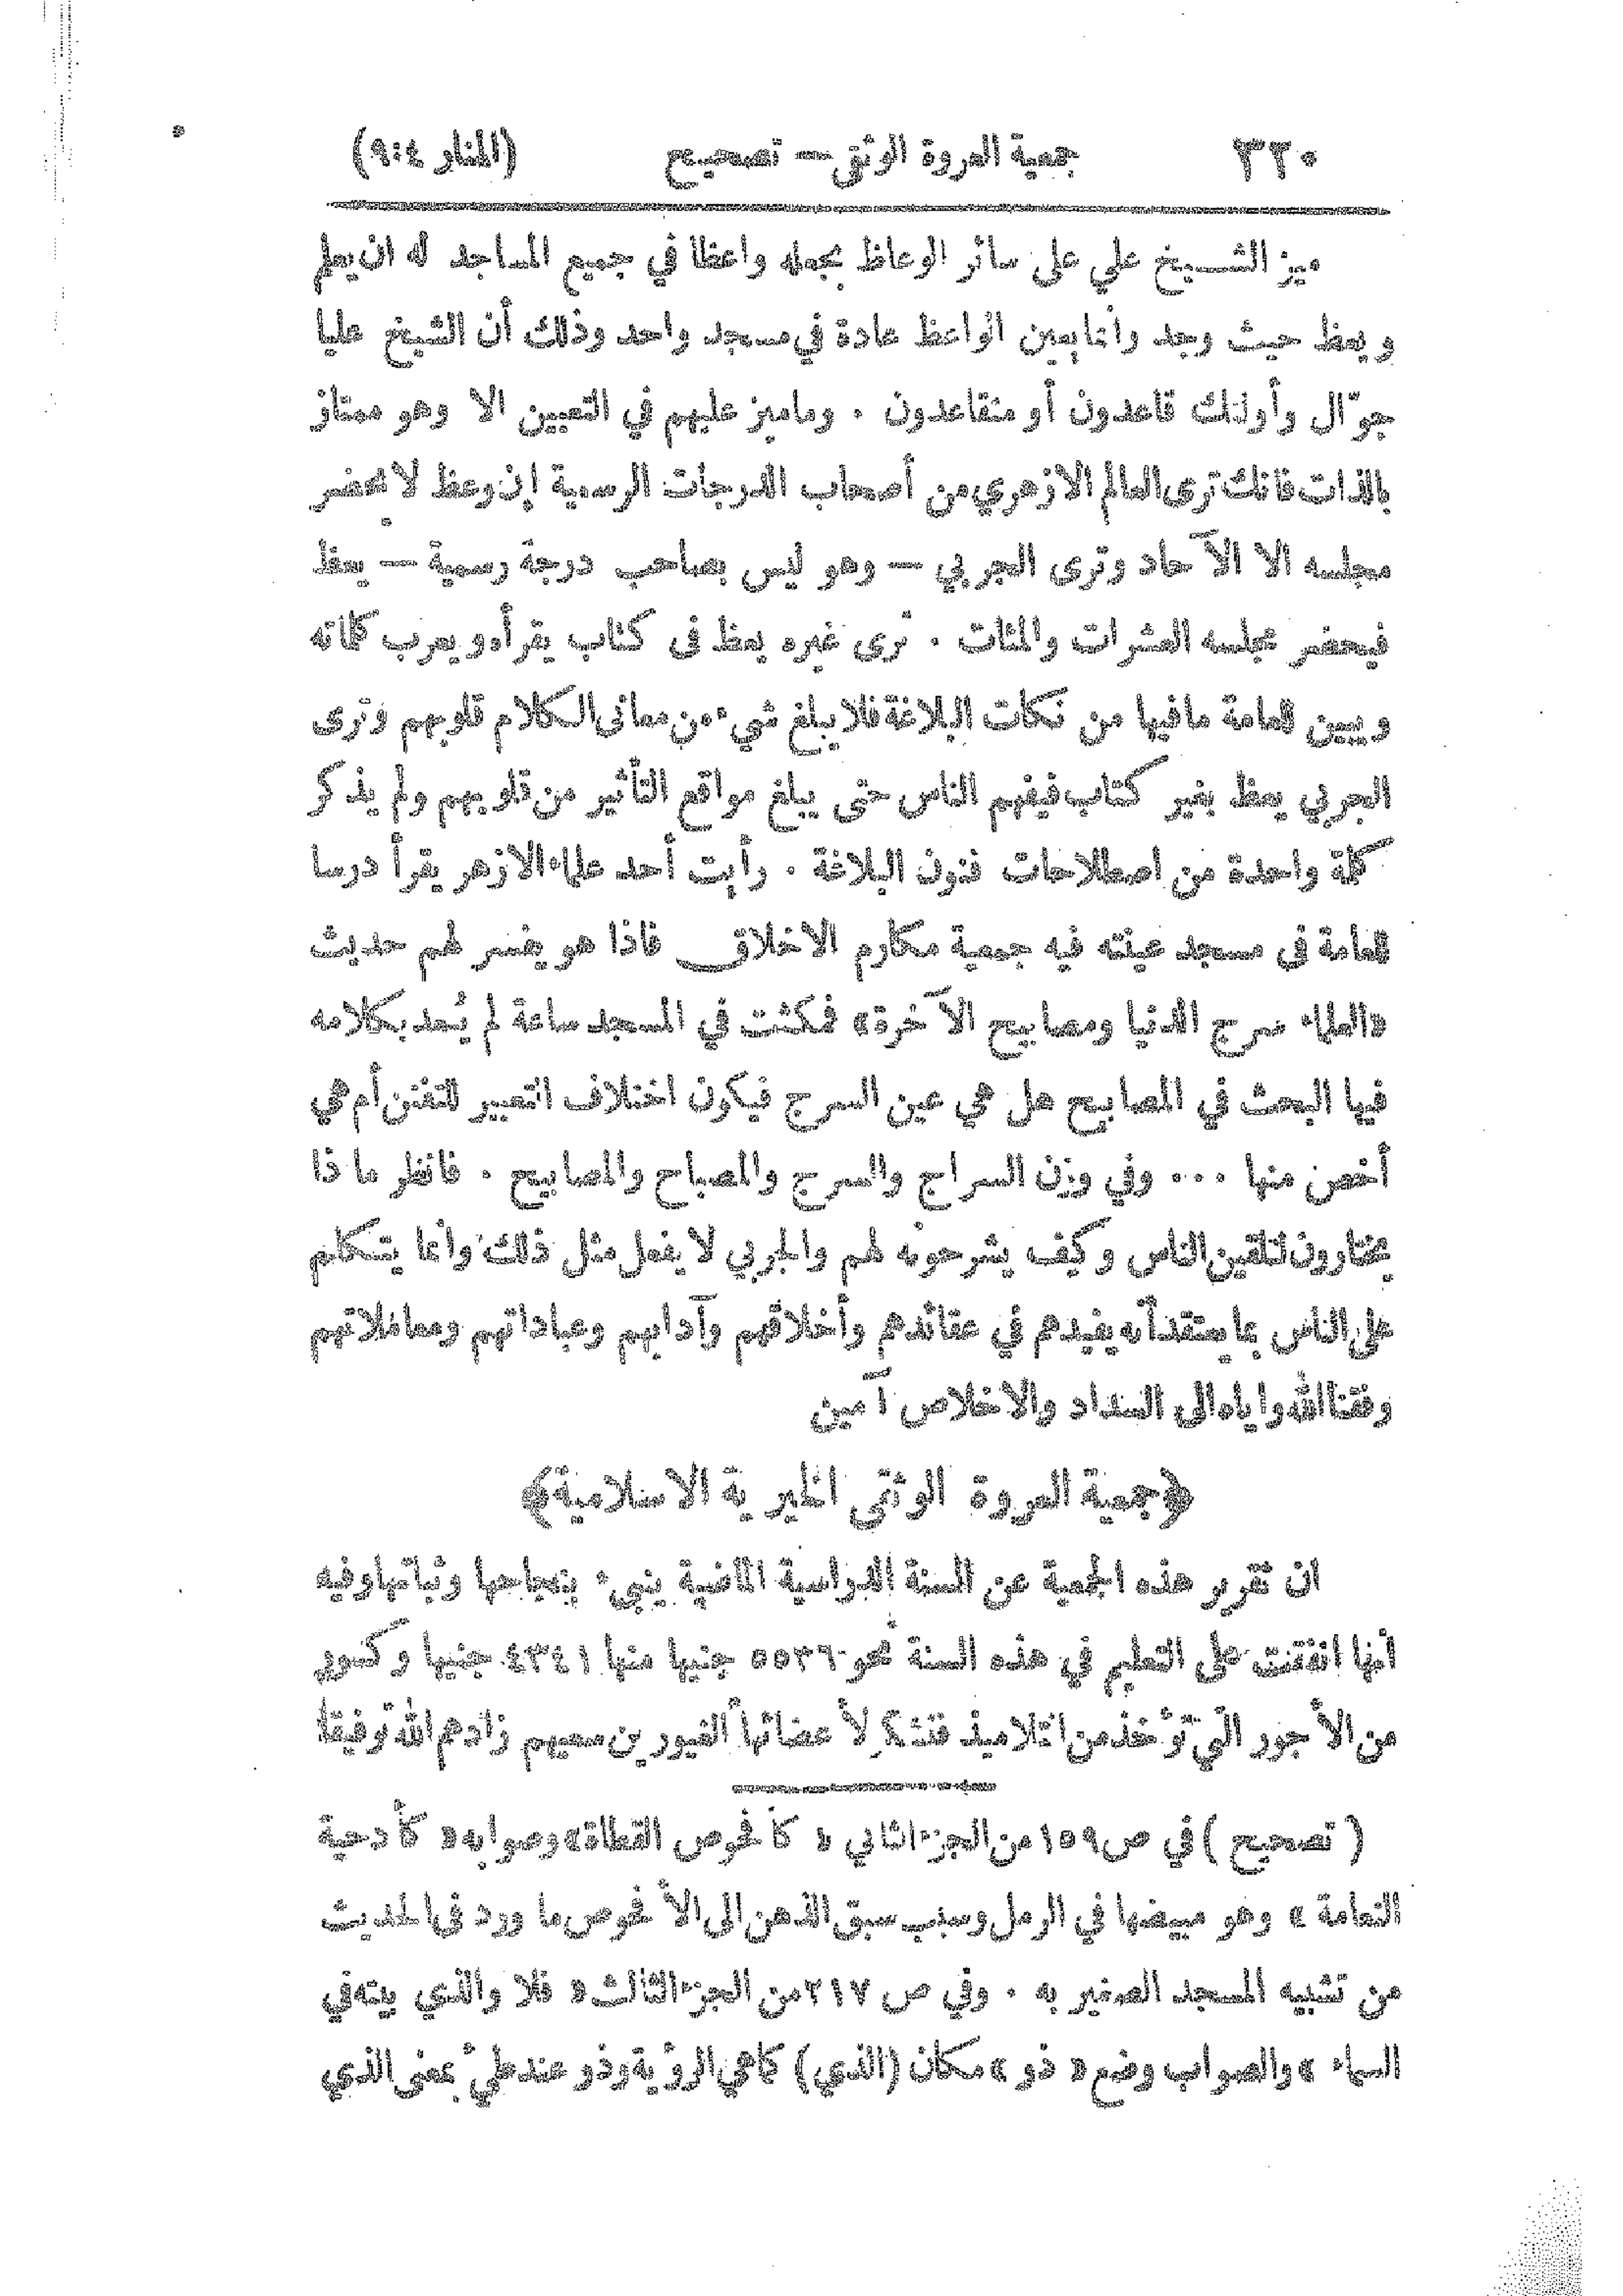 ٣٢٠ جمعية العروة الوثقى — تصحيح (المنار ٩:٤)
ميز الشيخ علي على سائر الوعاظ بجعله واعظا في جميع المساجد له ان يعلم
ويعظ حيث وجد وانما يعين الواعظ عادة في مسجد واحد وذلك أن الشيخ عليا
جوّال وأولئك قاعدون أو متقاعدون . وما ميز عليهم في التعيين الا وهو ممتاز
بالذات فانك ترى العالم الازهري من أصحاب الدرجات الرسمية إن وعظ لا يحضر
مجلسه الا الآحاد وترى الجربي — وهو ليس بصاحب درجة رسمية — يعظ
فيحضر مجلسه العشرات والمئات . ترى غيره يعظ في كتاب يقرأه ويعرب كلماته
ويبين للعامة ما فيها من نكات البلاغة فلا يبلغ شيء من معاني الكلام قلوبهم وترى
الجربي يعظ بغير كتاب فيفهم الناس حتى يبلغ مواقع التأثير من قلوبهم ولم يذكر
كلمة واحدة من اصطلاحات فنون البلاغة . رأيت أحد علماء الازهر يقرأ درسا
للعامة في مسجد عينته فيه جمعية مكارم الاخلاق فاذا هو يفسر لهم حديث
«العلماء سرج الدنيا ومصابيح الآخرة» فمكثت في المسجد ساعة لم يَعد بكلامه
فيها البحث في المصابيح هل هي عين السرج فيكون اختلاف التعبير للتفنن أم هي
أخص منها ... وفي وزن السراج والسرج والمصباح والمصابيح . فانظر ما ذا
يختارون لتلقين الناس وكيف يشرحونه لهم والجربي لا يفعل مثل ذلك وانما يتكلم
على الناس بما يعتقد أنه يفيدهم في عقائدهم وأخلاقهم وآدابهم وعباداتهم ومعاملاتهم
وفقنا الله واياه الى السداد والاخلاص آمين
﴿جمعية العروة الوثقى الخيرية الاسلامية﴾
ان تقرير هذه الجمعية عن السنة الدراسية الماضية ينبيء بنجاحها وثباتها وفيه
أنها انفقت على التعليم في هذه السنة نحو ٥٥٣٦ جنيها منها ٤٣٤١ جنيها وكسور
من الأجور التي تؤخذ من التلاميذ فنشكر لأعضائها الغيورين سعيهم زادهم الله توفيقا
(تصحيح) في ص ١٥٩ من الجزء الثاني « كأفحوص القطاة» وصوابه « كأدحية
النعامة » وهو مبيضها في الرمل وسبب سبق الذهن الى الأفحوص ما ورد في الحديث
من تشبيه المسجد الصغير به . وفي ص ٢١٧ من الجزء الثالث « فلا والذي بيته في
السماء » والصواب وضع « ذو » مكان (الذي) كما هي الرؤية وذو عند طيّ بمعنى الذي